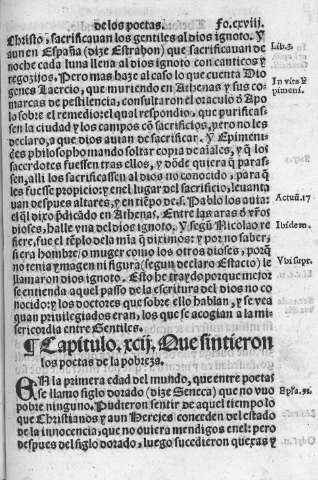 de los poetas. Fo.cxviij.
Christo, sacrificauan los gentiles al dios ignoto. Y
aun en España (dize Estrabon) que sacrificauan de
Lib.3.
noche cada luna llena al dios ignoto con canticos y
regozijos. Pero mas haze al caso lo que cuenta Dio
genes Laercio, que muriendo en Athenas y sus co-
In vita Epimeni.
marcas de pestilencia, consultaron el oraculo d̃ Apo
lo sobre el remedio: el qual respondio, que purificas-
sen la ciudad y los campos cõ sacrificios, pero no les
declaro, a que dios auian de sacrificar. Y Epimeni-
des philosopho mando soltar copia de aiales, y q̃ los
sacerdotes fuessen tras ellos, y dõde quiera q̃ paras-
sen, alli los sacrificassen al dios no conocido, para q̃
les fuesse propicio: y en el lugar del sacrificio, leuanta
uan despues altares, y en tiẽpo de s. Pablo los auia:
Actuũ.17
el q̃l dixo p̃dicado en Athenas, Entre las aras d̃ vr̃os
dioses, halle vna del dios ignoto. Y segũ Nicolao re
Ibidem.
fiere, fue el tẽplo de la mia q̃ diximos: y por no saber,
si era hombre/o muger como los otros dioses, porq̃
no tenia ymagen ni figura (segun declaro Estacio) le
Vbi supr.
llamaron dios ignoto. Esto he traydo porque mejor
se entienda aquel passo de la escritura del dios no co
nocido: y los doctores que sobre ello hablan, y se vea
quan priuilegiados eran, los que se acogian a la mi-
sericordia entre Gentiles.
¶ Capitulo. xcij. Que sintieron
los poetas de la pobreza.
EN la primera edad del mundo, que entre poetas
se llamo siglo dorado (dize Seneca) que no vuo
Epła.91.
pobre ninguno. Pudieron sentir de aquel tiempo lo
que Christianos y aun Herejes conceden del estado
de la innocencia, que no ouiera mendigos en el: pero
despues del siglo dorado, luego sucedieron quexas y